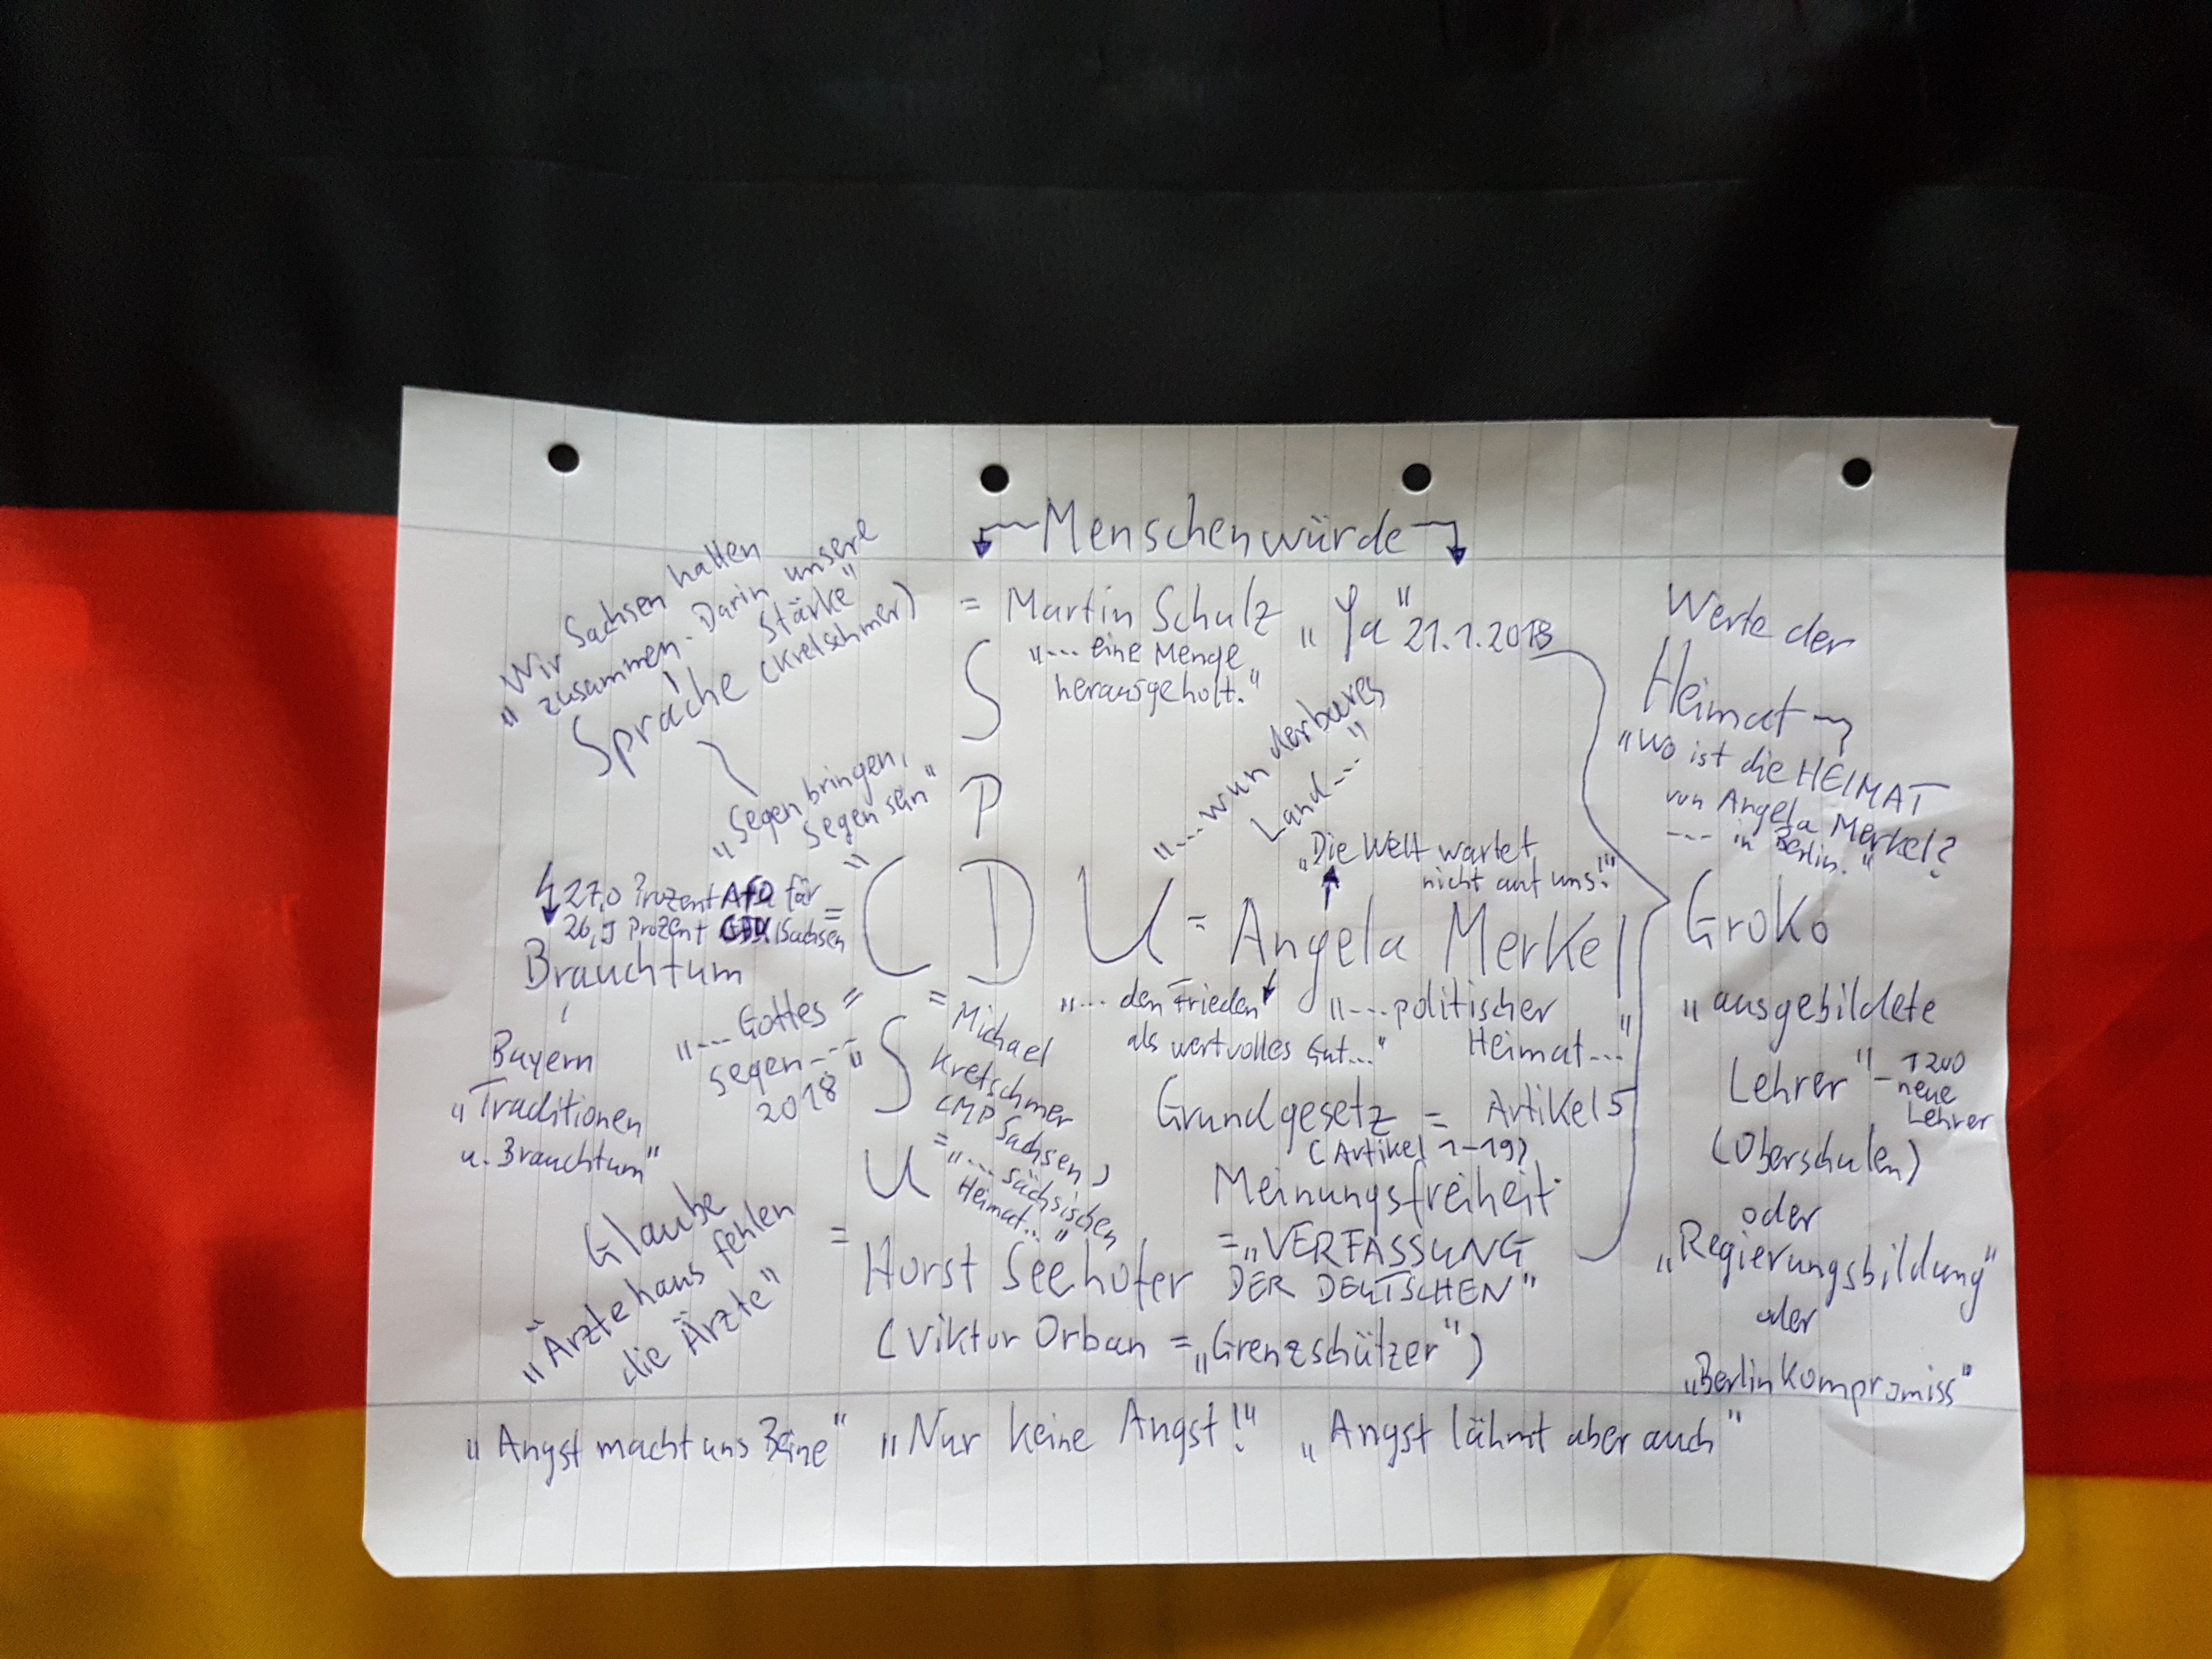 Menschenwürde
„Wir Sachsen halten
zusammen. Darin unsere
Stärke"
Sprache (Kretschmer)
„Segen bringen,
Segen sein"
= Martin Schulz „Ja" 21.1.2018
„... eine Menge
herausgeholt."
S
P
CDU = Angela Merkel
„... wunderbares
Land ..."
„Die Welt wartet
nicht auf uns!"
27,0 Prozent AfD für
26,9 Prozent CDU (Sachsen =
Brauchtum
Bayern
„Traditionen
u. Brauchtum"
„... Gottes =
Segen ... "
2018
S
U
= Michael
Kretschmer
(MP Sachsen)
= „... sächsischen
Heimat..."
„... den Frieden
als wertvolles Gut..."
„... politischer
Heimat..."
Grundgesetz = Artikel 5
(Artikel 1-19)
Meinungsfreiheit
= „VERFASSUNG
DER DEUTSCHEN"
Glaube
„Ärztehaus fehlen
die Ärzte"
= Horst Seehofer
(Viktor Orban = „Grenzschützer")
Werte der
Heimat
„Wo ist die HEIMAT
von Angela Merkel?
--- in Berlin."
GroKo
„ausgebildete
Lehrer" - 1200
neue
Lehrer
(Oberschulen)
oder
„Regierungsbildung"
oder
„Berlinkompromiss"
„Angst macht uns Beine" „Nur keine Angst!" „Angst lähmt aber auch"